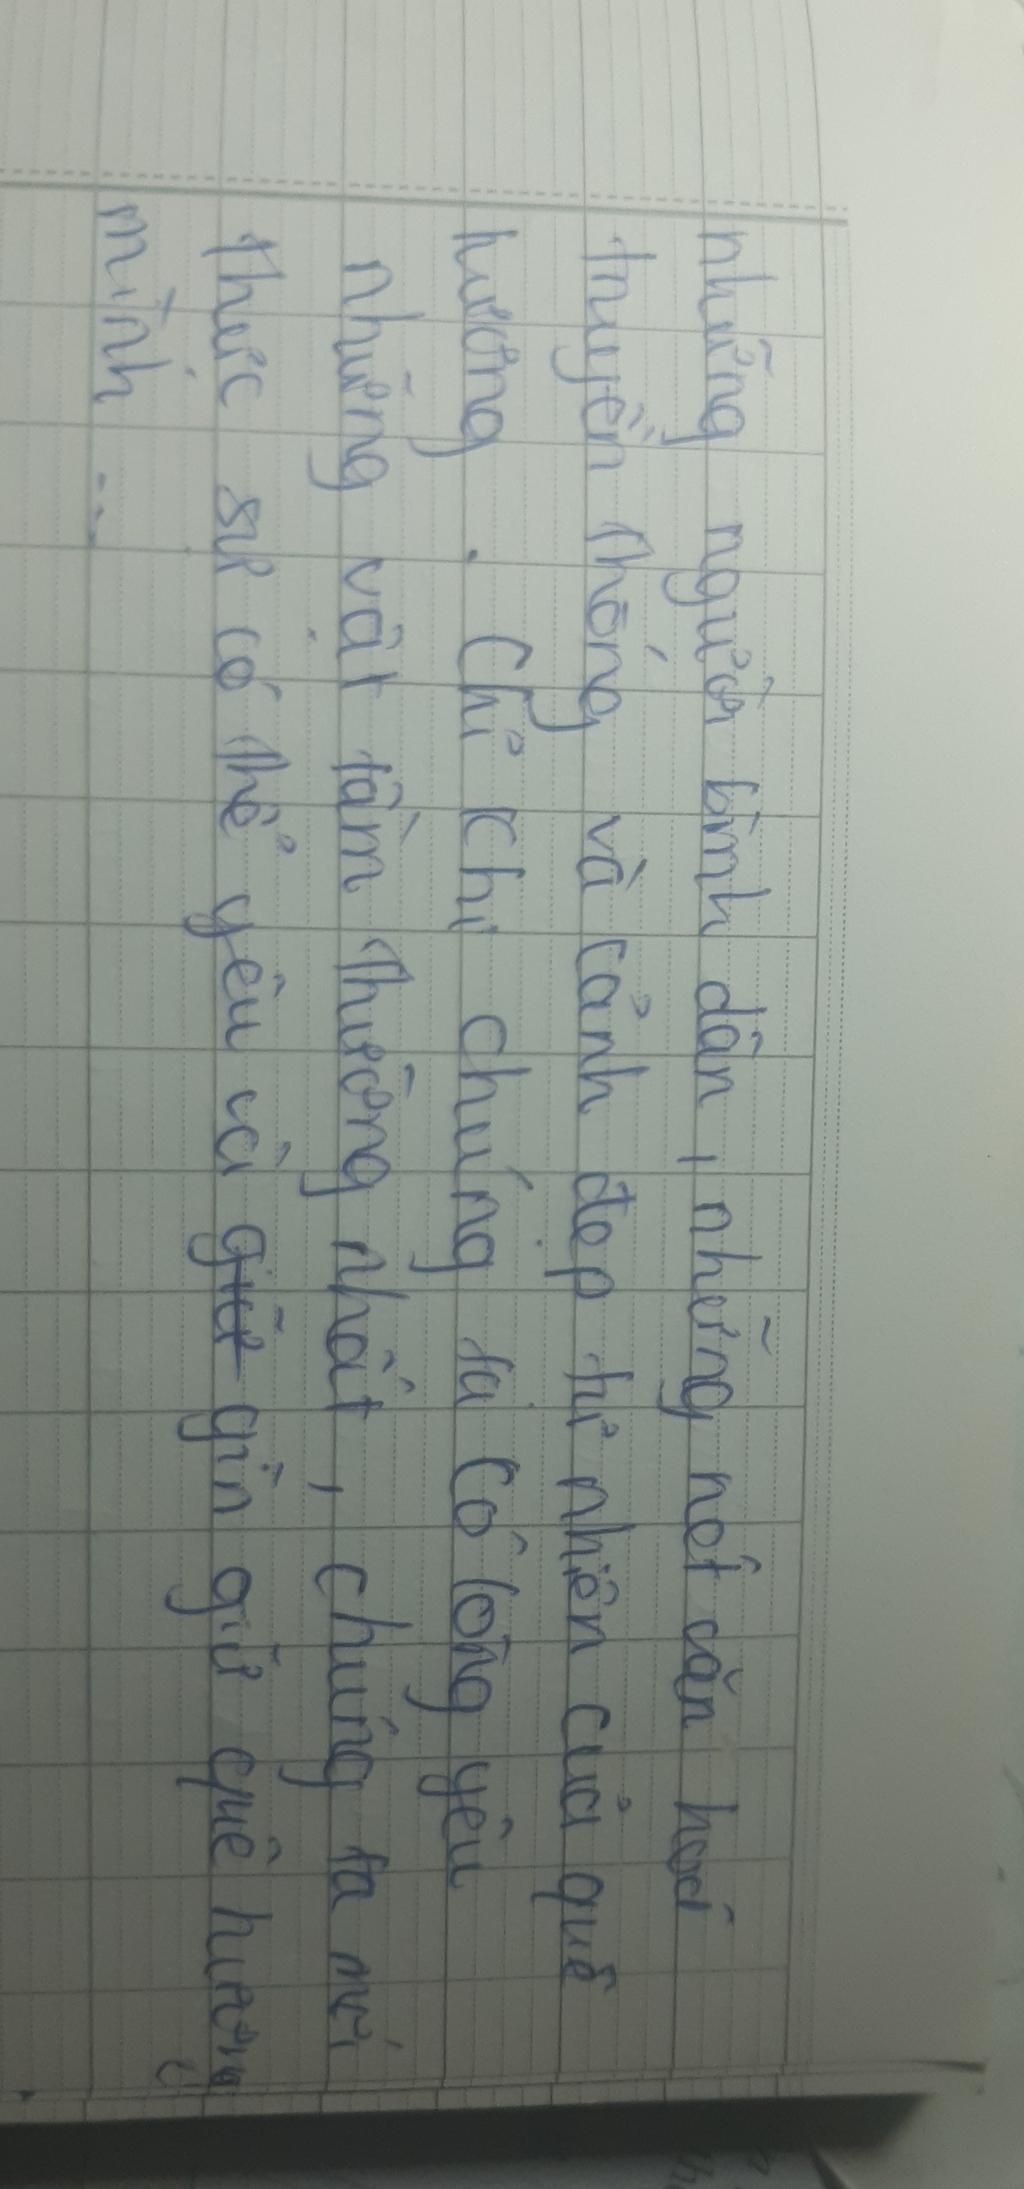 những người bình dân, những nét văn hoá
truyền thống và cảnh đẹp tự nhiên của quê
hương. Chỉ khi chúng ta có lòng yêu
những vật tầm thường nhất, chúng ta mới
thực sự có thể yêu và giữ gìn giữ quê hương
mình...